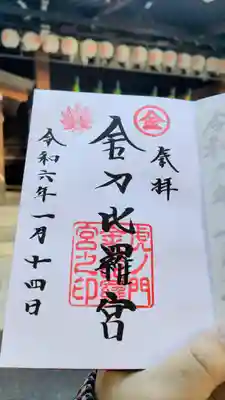 奉拝
金
金刀比羅宮
虎ノ門
金刀比羅
宮之印
令和六年一月十四日